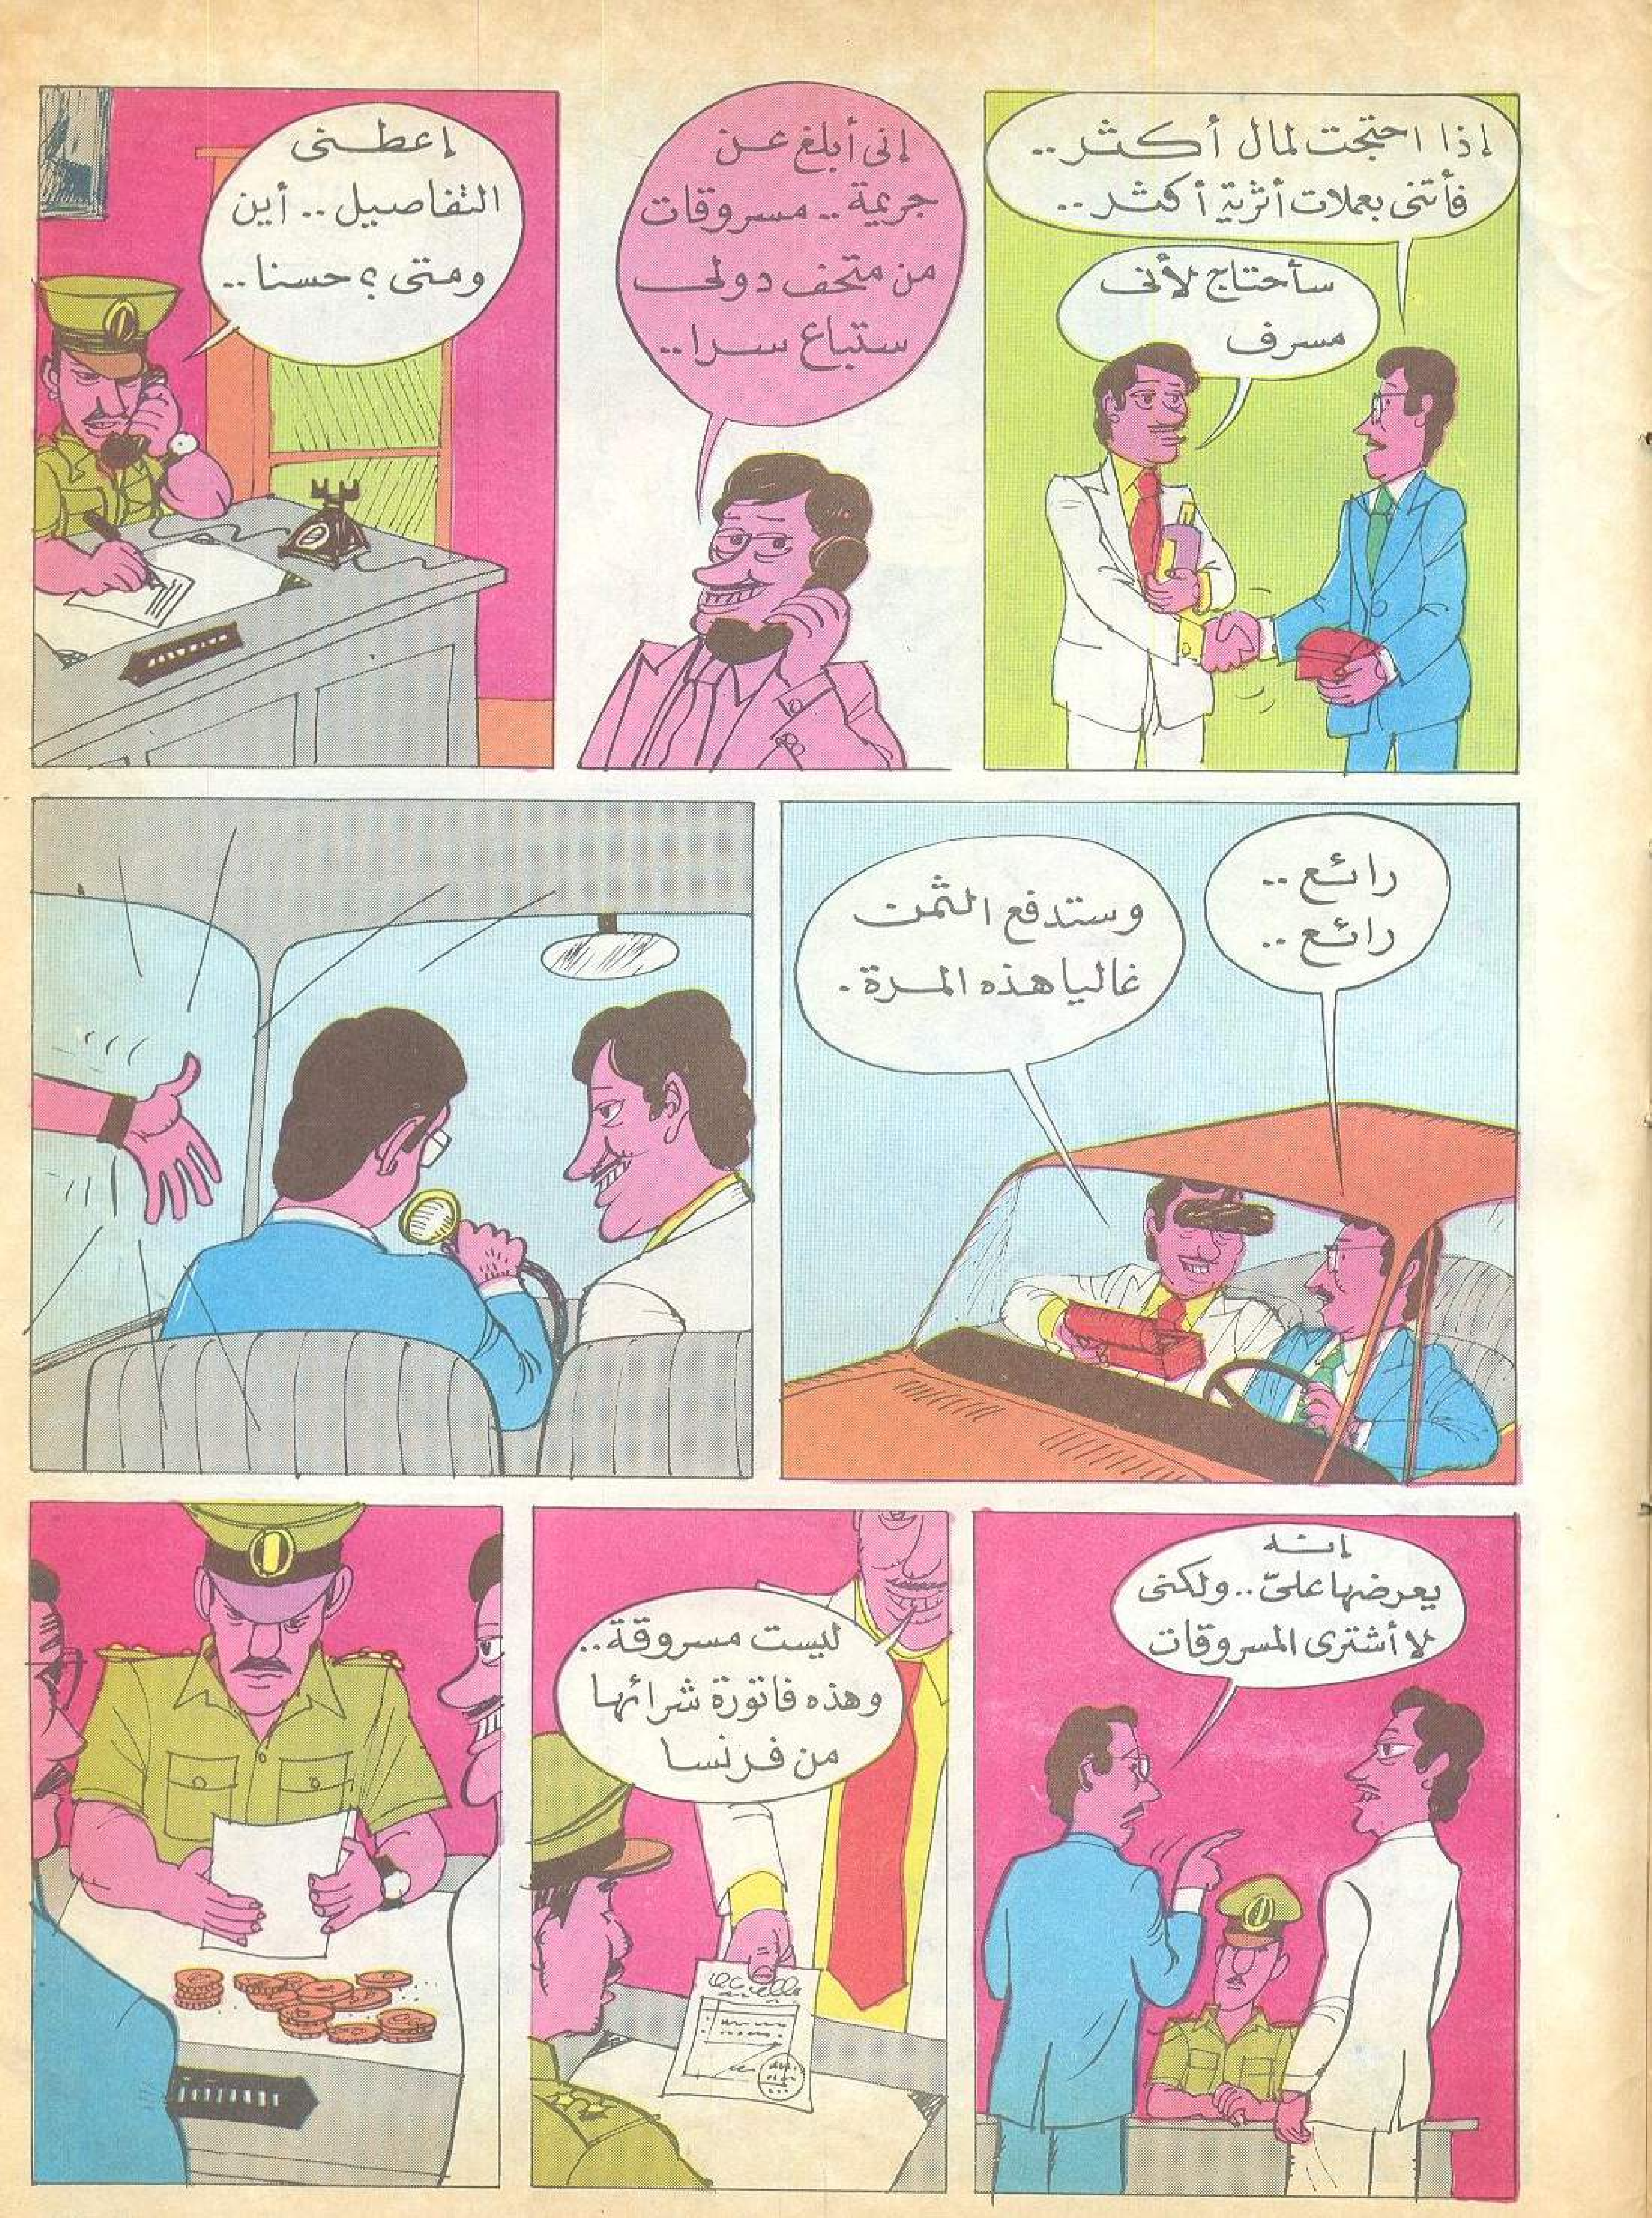 إذا احتجت لمال أكثر..
فأتنى بعملات أثرية أكثر..
سأحتاج لأنى
مسرف
إنى أبلغ عن
جريمة.. مسروقات
من متحف دولى
ستباع سرا..
إعطنى
التفاصيل.. أين
ومتى؟ حسنا..
رائع..
رائع..
وستدفع الثمن
غاليا هذه المرة.
إنه
يعرضها علىّ.. ولكنى
لا أشترى المسروقات
ليست مسروقة..
وهذه فاتورة شرائها
من فرنسا